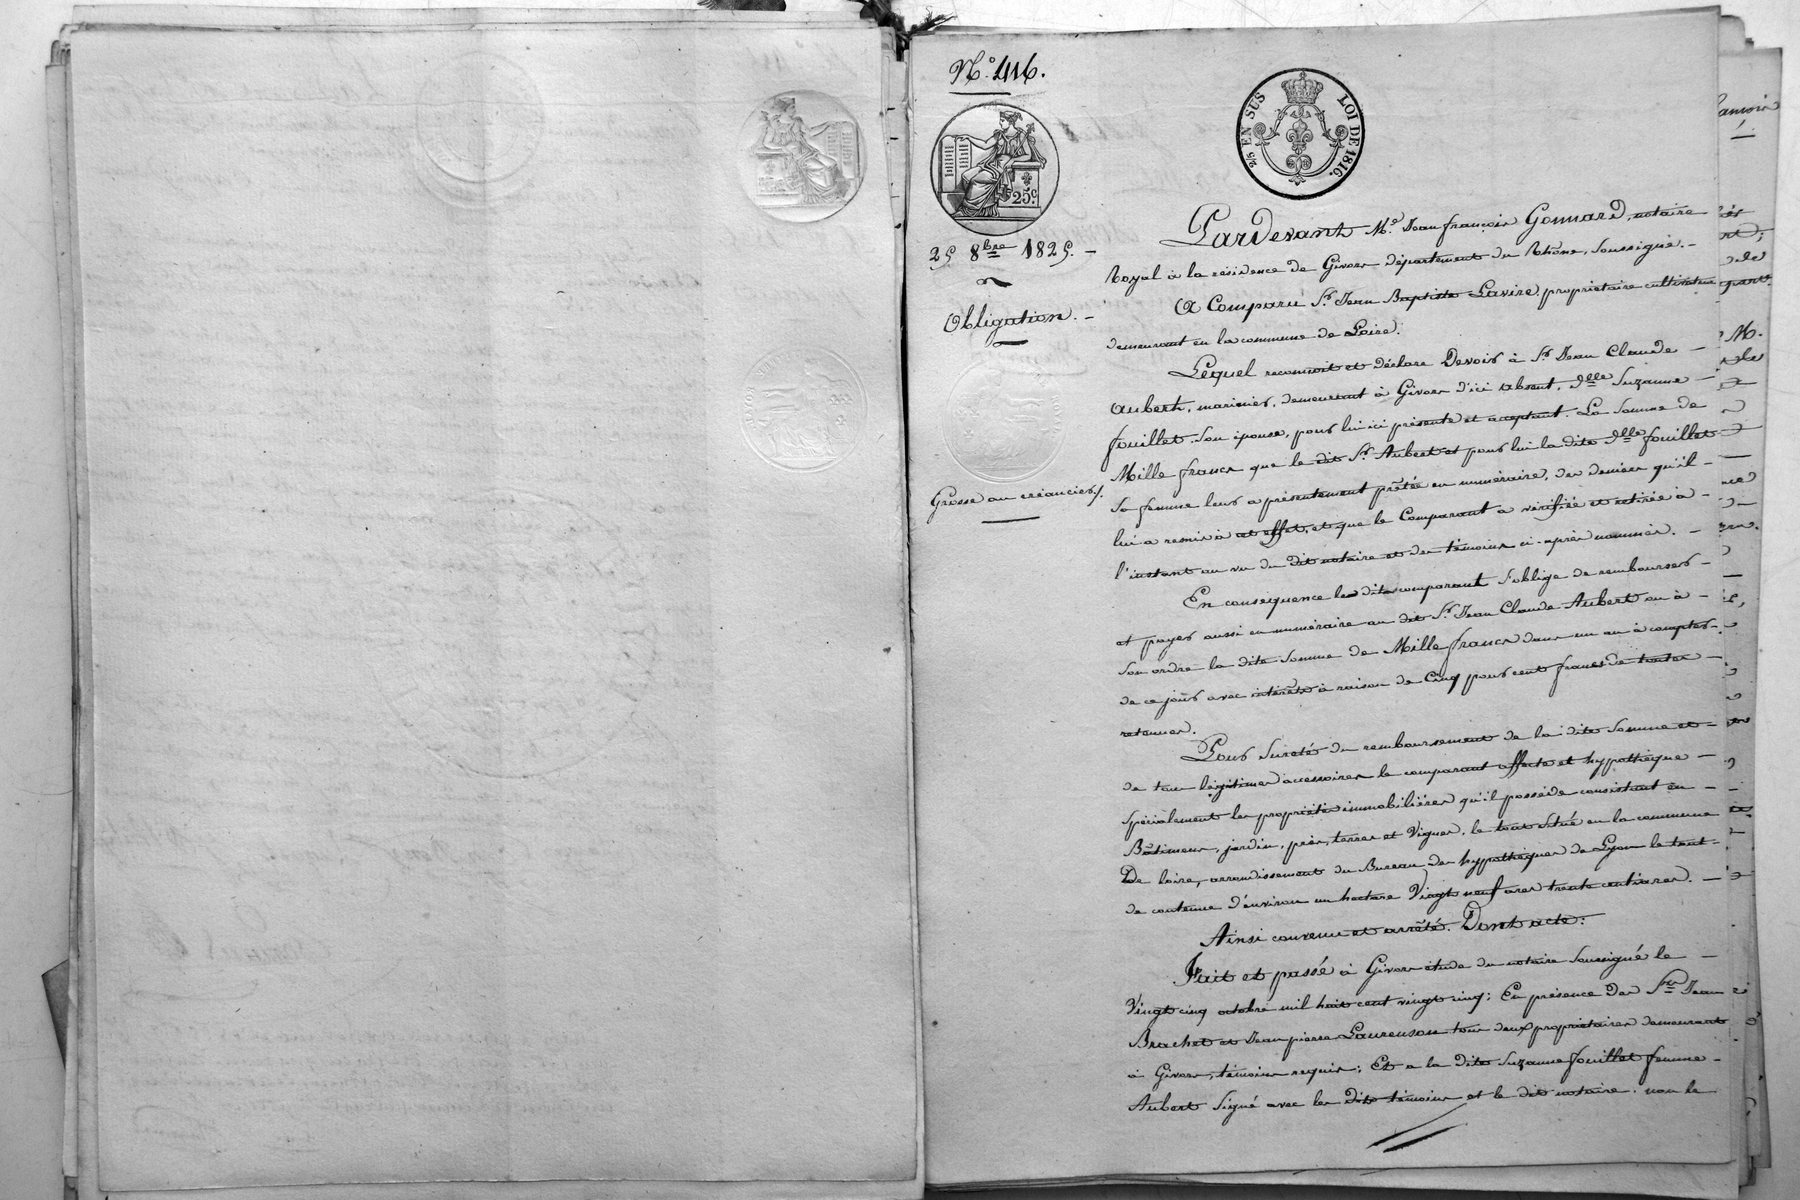 N.° 416.
2/5 EN SUS LOI DE 1816.
25.c
25 8bre 1825. -
Obligation. -
Grosse au créancier /.
Pardevant M.e Jean françois Gonnard, notaire
Royal à la résidence de Givors département du Rhône, soussigné. -
A Comparu S.r Jean Baptiste Lavire, propriétaire cultivateur
demeurant en la commune de Loire.
Lequel reconnoit et déclare Devoir à S.r Jean Claude -
Aubert, marinier, demeurant à Givors d'ici absent, dlle Suzanne -
fouillet son épouse, pour lui ici présente et acceptant. La Somme de
Mille francs que le dit S.r Aubert et pour lui la dite dlle fouillet
sa femme leur a présentement prêtée en numéraire, des deniers qu'il -
lui a remis à cet effet, et que le Comparant a vérifiée et retirée à -
l'instant au vu du dit notaire et des témoins ci-après nommés. -
En conséquence le dit comparant s'oblige de rembourser -
et payer aussi en numéraire au dit S.r Jean Claude Aubert ou à -
son ordre la dite Somme de Mille francs dans un an à compter -
de ce jour avec intérêts à raison de Cinq pour cent francs de toutes -
retenues.
Pour Sureté du remboursement de la dite Somme et -
de tous légitimes accessoires le comparant affecte et hypothèque -
spécialement les propriétés immobilières qu'il possède consistant en -
Bâtimens, jardin, près, terres et Vignes, le tout situé en la commune
De loire, arrondissement du Bureau des hypothèques de Lyon le tout -
de contenue d'environ un hectare Vingt neuf ares trente centiares. -
Ainsi convenu et arrêté. Dont acte.
Fait et passé à Givors étude du notaire soussigné le -
Vingt cinq octobre mil huit cent vingt cinq; En présence Des Srs Jean
Brachet et Jean pierre Laurenson tous deux propriétaires demeurant
à Givors, témoins requis; Et a la dite Suzanne fouillet femme -
Aubert Signé avec les dits témoins et le dit notaire. non le